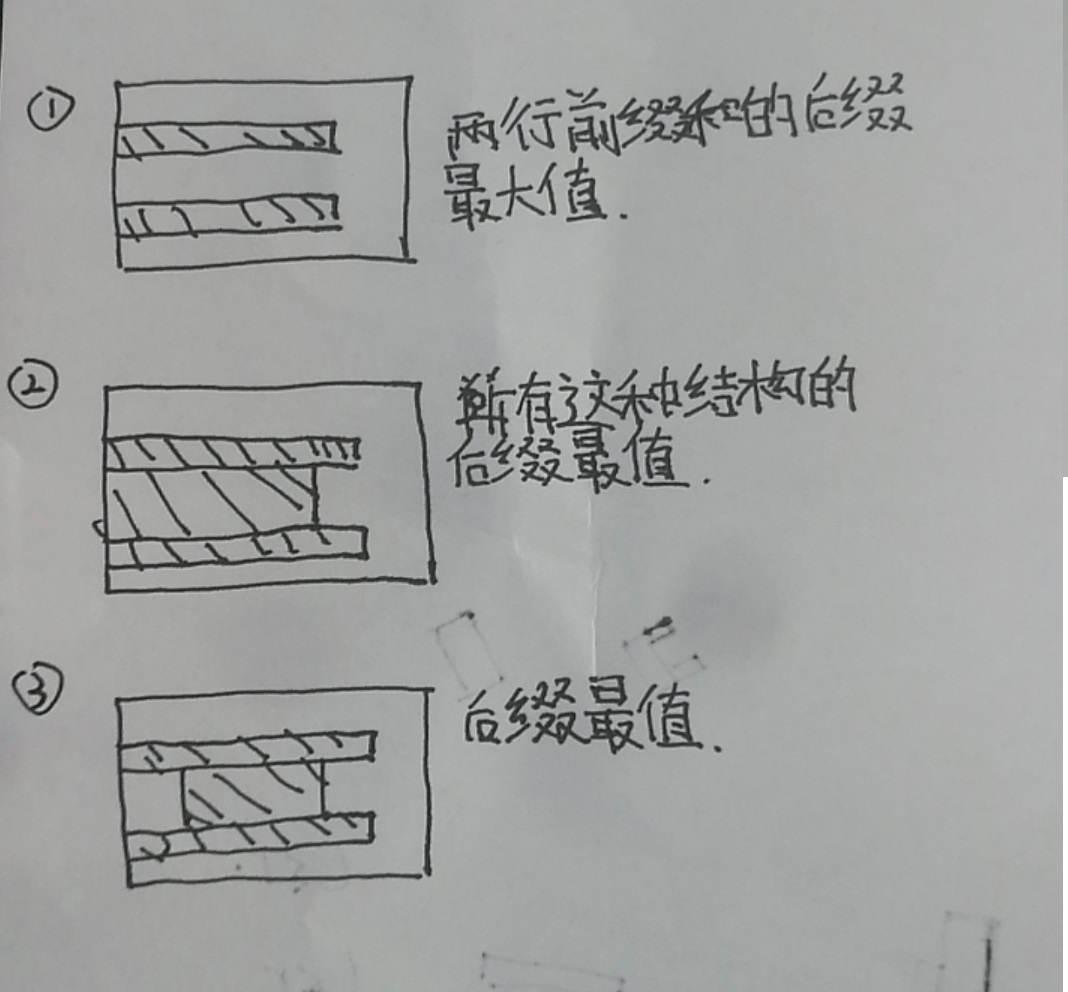 ① 两行前缀和的后缀
最大值.
② 所有这种结构的
后缀最值.
③ 后缀最值.